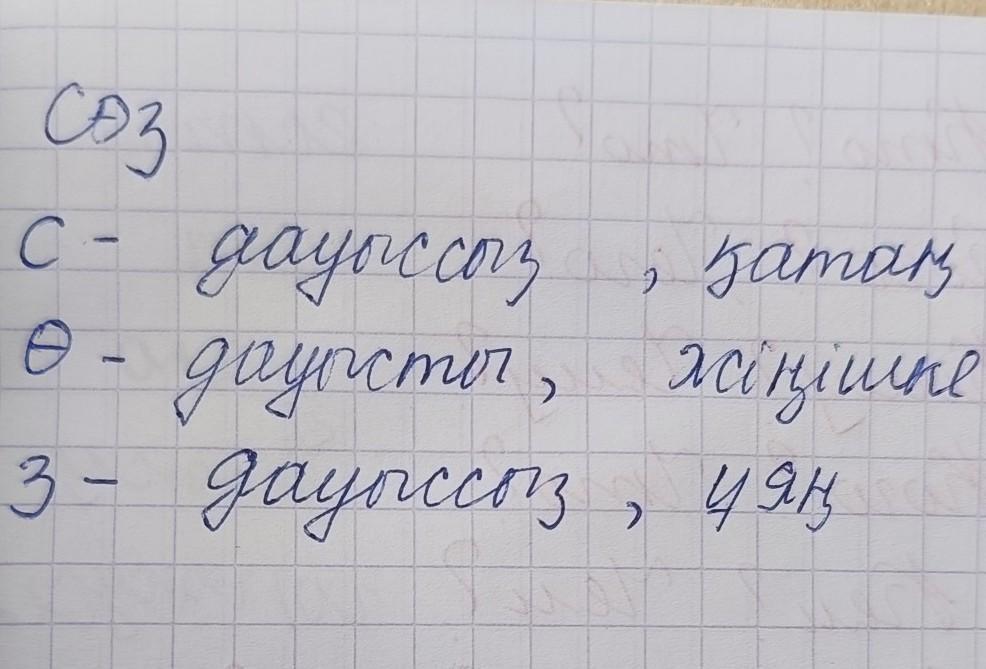 сөз
с - дауыссыз , қатаң
ө - дауысты, жіңішке
з - дауыссыз , ұяң